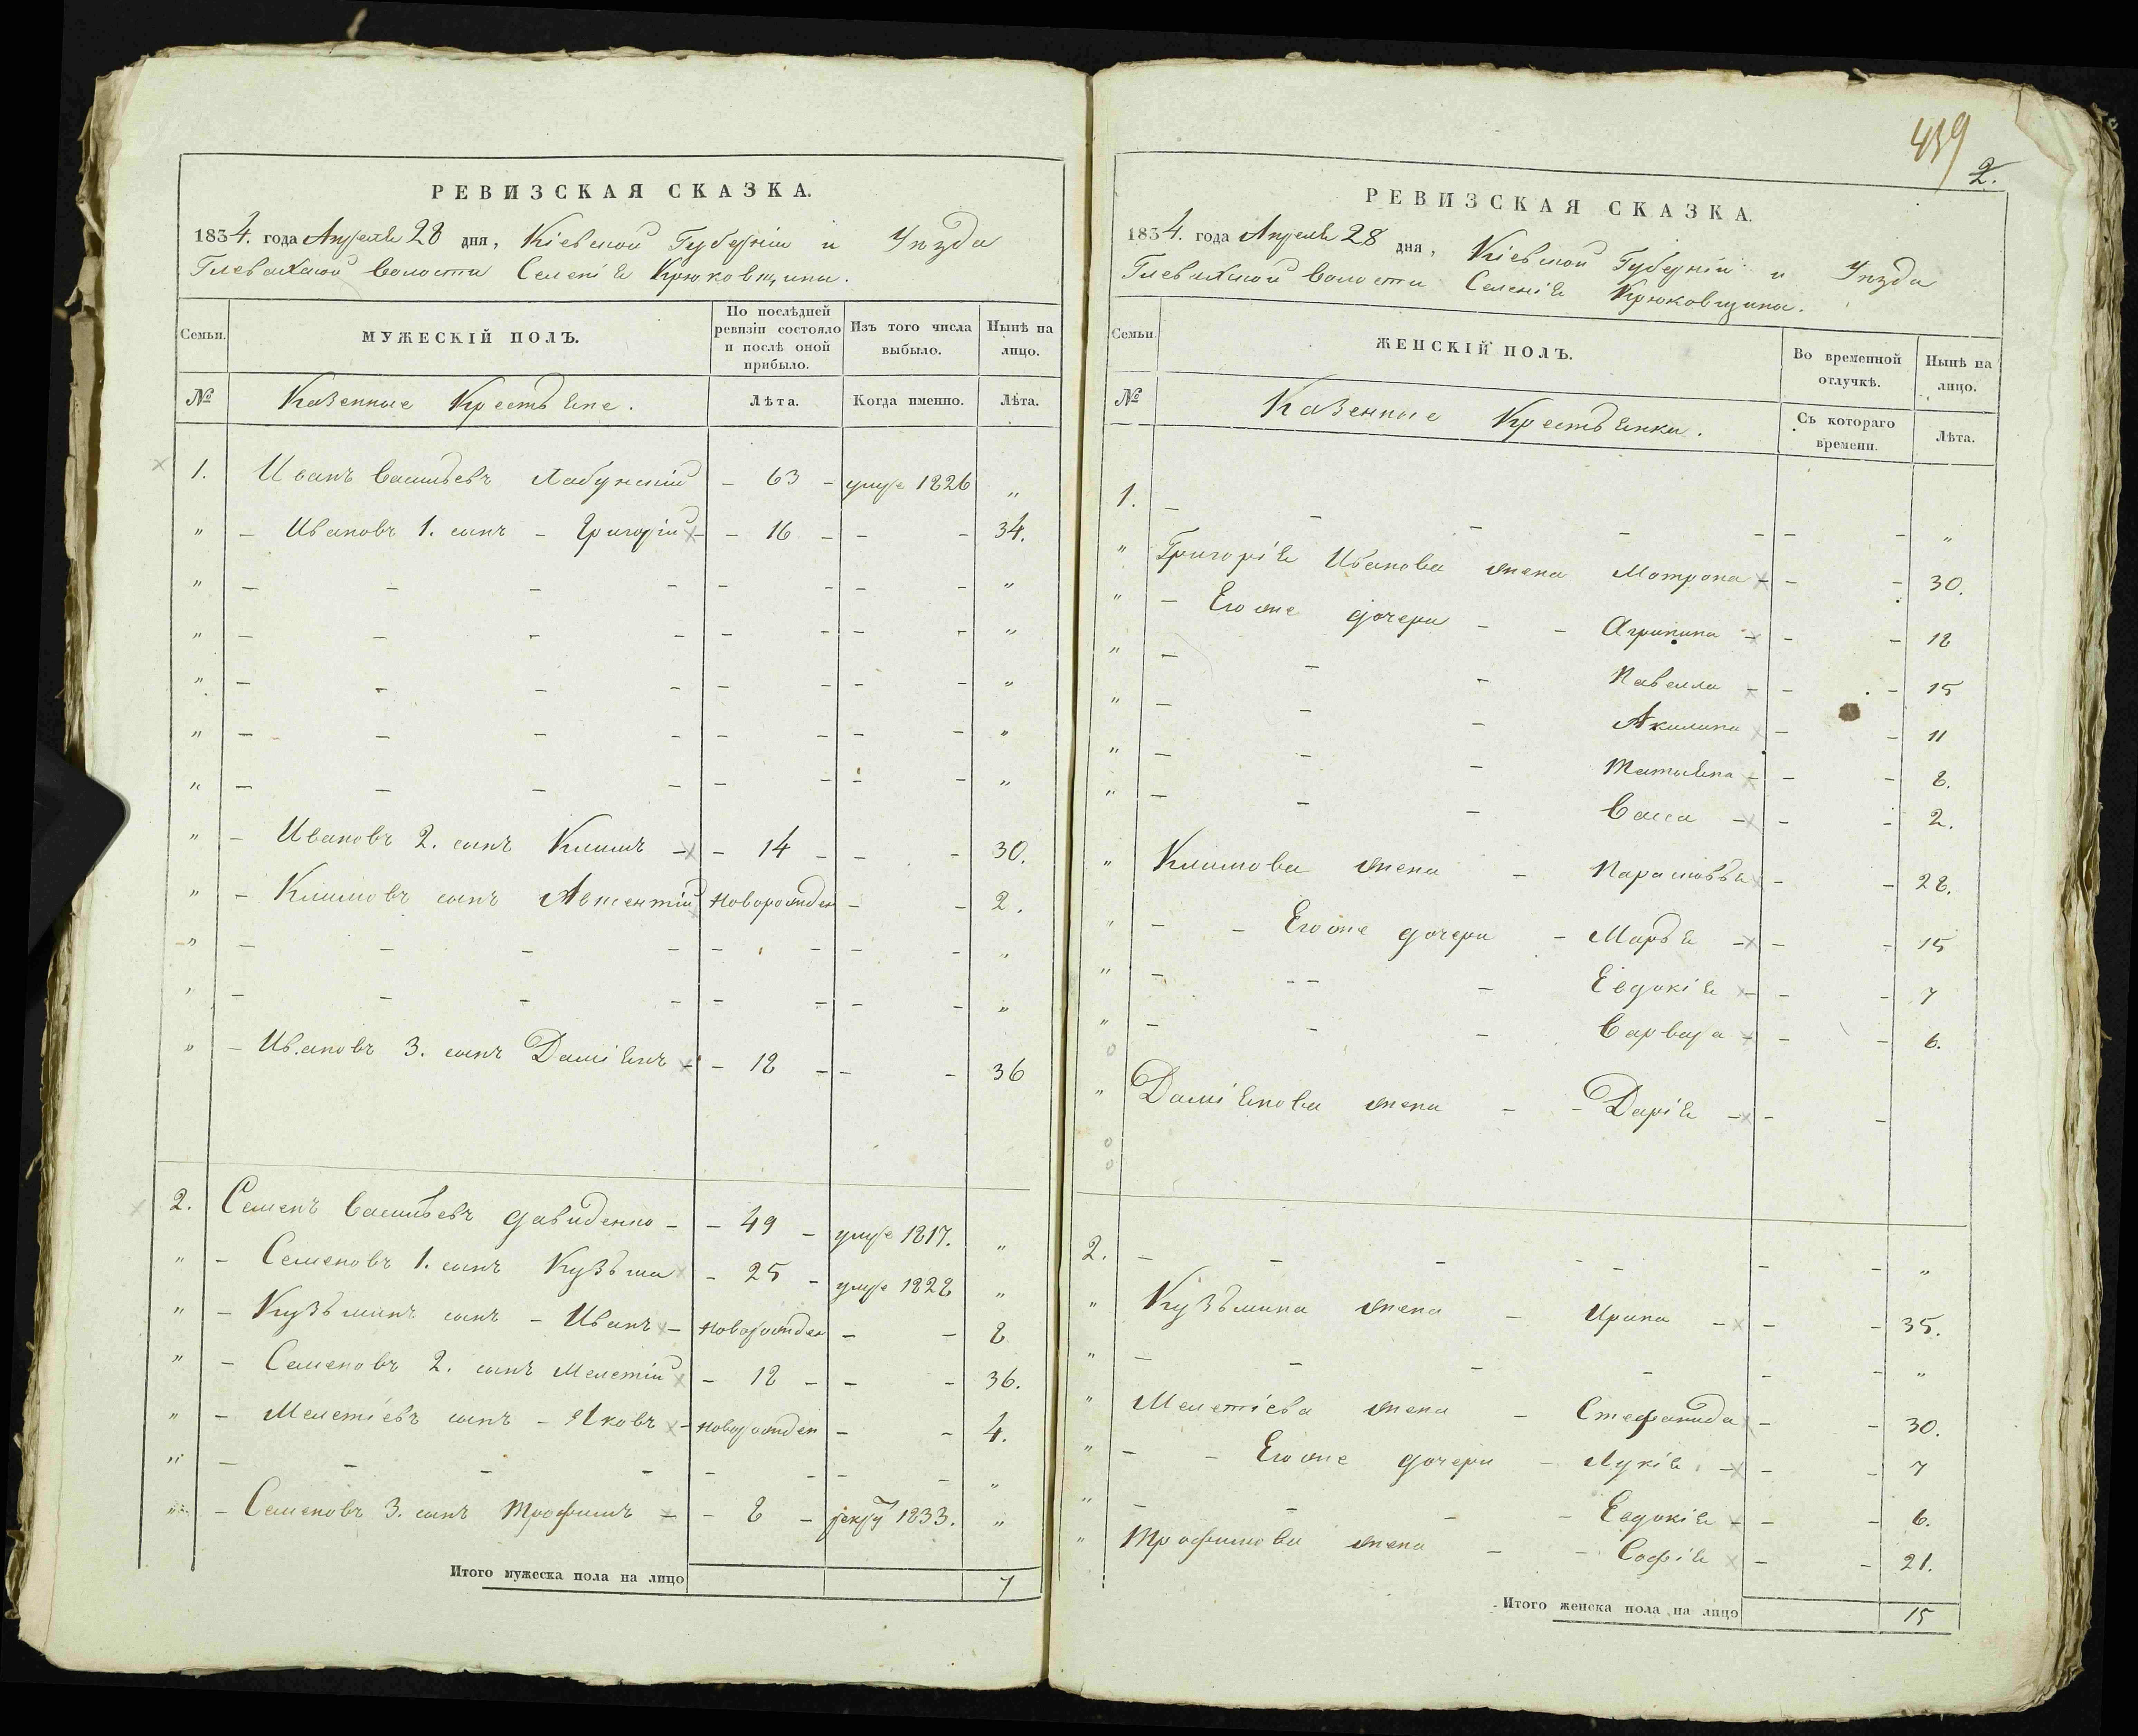 РЕВИЗСКАЯ СКАЗКА.
1834. года Апреля 28 дня, Кіевской Губерніи и Уѣзда
Глевахской Волости Селенія Крюковщины.
Семьи.
МУЖЕСКІЙ ПОЛЪ.
По послѣдней ревизіи состояло и послѣ оной прибыло.
Изъ того числа выбыло.
Нынѣ на лицо.
№
Казенные Крестьяне.
Лѣта.
Когда именно.
Лѣта.
1. Иванъ Васильевъ Лабунскій - 63 - умре 1826 "
" - Ивановъ 1. сынъ - Григорій - - 16 - - - 34.
" - - - - - - - - "
" - - - - - - - - "
" - - - - - - - - "
" - - - - - - - - "
" - - - - - - - - "
" - Ивановъ 2. сынъ Климъ - - 14 - - - 30.
" - Климовъ сынъ Авксентій новорожден - - 2.
" - - - - - - - - "
" - - - - - - - - "
" - Ивановъ 3. сынъ Даміянъ - - 18 - - - 36
2. Семенъ Васильевъ Давиденко - - 49 - умре 1817. "
" - Семеновъ 1. сынъ Кузьма - 25 - умре 1828 "
" - Кузьминъ сынъ - Иванъ - новорожден - - 8
" - Семеновъ 2. сынъ Мелетій - 18 - - - 36.
" - Мелетіевъ сынъ - Яковъ - новорожден - - 4.
" - - - - - - - - "
" - Семеновъ 3. сынъ Трофимъ - - 8 - рекру 1833. "
Итого мужеска пола на лицо 7
439
2.
РЕВИЗСКАЯ СКАЗКА.
1834. года Апреля 28 дня, Кіевской Губерніи и Уѣзда
Глевахской Волости Селенія Крюковщины.
Семьи.
ЖЕНСКІЙ ПОЛЪ.
Во временной отлучкѣ.
Нынѣ на лицо.
№
Казенные Крестьянки.
Съ котораго времени.
Лѣта.
1. - - - - - - - "
" Григорія Иванова жена Мотрона - - - 30.
" - Его же дочери - - Агрипина - - - 18
" - - - Павелла - - - 15
" - - - Акилина - - 11
" - - - Татьяна - - - 8.
" - - - Васса - - - 2.
" Климова жена - Парасковья - - 28.
" - - Его же дочери - Марья - - - 15
" - - - - Евдокія - - - 7
" - - - Варвара - - - 6.
" Даміянова жена - - Дарія - - -
2. - - - - - - - "
" Кузьмина жена - Ирина - - - 35.
" - - - - - - "
" Мелетіева жена - Стефанида - - 30.
" - - Его же дочери - Лукія - - - 7
" - - - - Евдокія - - - 6.
" Трофимова жена - - Софія - - 21.
Итого женска пола на лицо 15